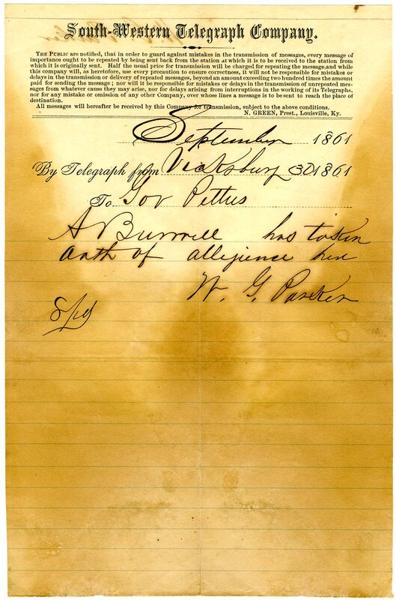 South-Western Telegraph Company.
THE PUBLIC are notified, that in order to guard against mistakes in the transmission of messages, every message of
importance ought to be repeated by being sent back from the station at which it is to be received to the station from
which it is originally sent. Half the usual price for transmission will be charged for repeating the message, and while
this company will, as heretofore, use every precaution to ensure correctness, it will not be responsible for mistakes or
delays in the transmission or delivery of repeated messages, beyond an amount exceeding two hundred times the amount
paid for sending the message; nor will it be responsible for mistakes or delays in the transmission of unrepeated mes-
sages from whatever causes they may arise, nor for delays arising from interruptions in the working of its Telegraphs,
nor for any mistake or omission of any other Company, over whose lines a message is to be sent to reach the place of
destination.
All messages will hereafter be received by this Company for transmission, subject to the above conditions.
N. GREEN, Prest., Louisville, Ky.
September 1861
By Telegraph from Vicksburg 30 1861
To Gov Pettus
A Burwell has taken
oath of allegience here
W. G. Parker